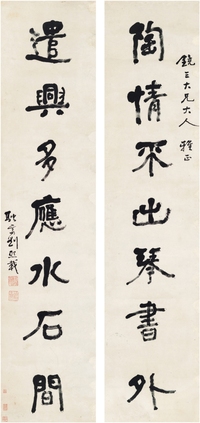 鏡三大兄大人 雅正
陶情不出琴書外
遣興多應水石間
融齋劉熙載